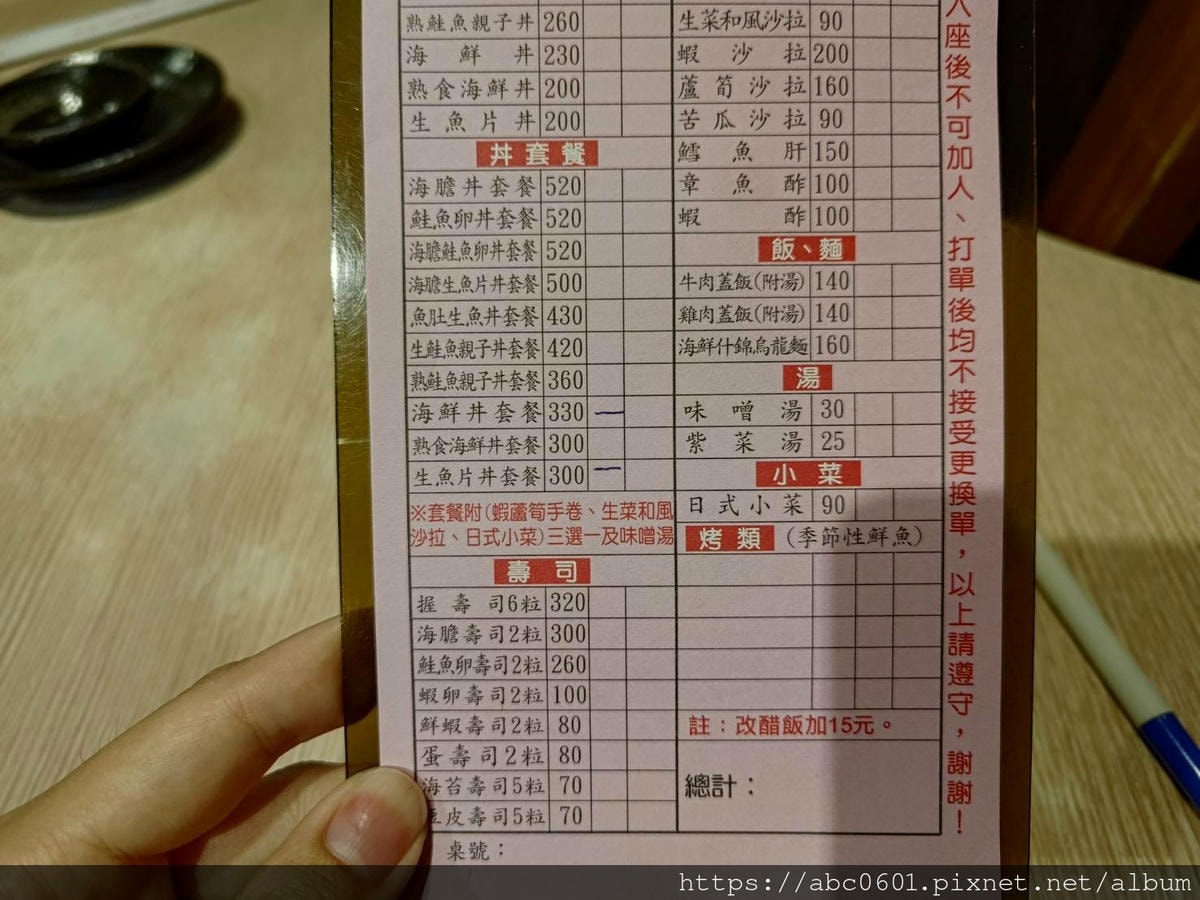 熟鮭魚親子丼 260
海鮮丼 230
熟食海鮮丼 200
生魚片丼 200
丼套餐
海膽丼套餐 520
鮭魚卵丼套餐 520
海膽鮭魚卵丼套餐 520
海膽生魚片丼套餐 500
魚肚生魚丼套餐 430
生鮭魚親子丼套餐 420
熟鮭魚親子丼套餐 360
海鮮丼套餐 330 一
熟食海鮮丼套餐 300
生魚片丼套餐 300 一
※套餐附(蝦蘆筍手卷、生菜和風
沙拉、日式小菜)三選一及味噌湯
壽司
握壽司6粒 320
海膽壽司2粒 300
鮭魚卵壽司2粒 260
蝦卵壽司2粒 100
鮮蝦壽司2粒 80
蛋壽司2粒 80
海苔壽司5粒 70
豆皮壽司5粒 70
桌號：
生菜和風沙拉 90
蝦沙拉 200
蘆筍沙拉 160
苦瓜沙拉 90
鱈魚肝 150
章魚酢 100
蝦酢 100
飯、麵
牛肉蓋飯(附湯) 140
雞肉蓋飯(附湯) 140
海鮮什錦烏龍麵 160
湯
味噌湯 30
紫菜湯 25
小菜
日式小菜 90
烤類 (季節性鮮魚)
註：改醋飯加15元。
總計：
入座後不可加人、打單後均不接受更換單，以上請遵守，謝謝！
https://abc0601.pixnet.net/album